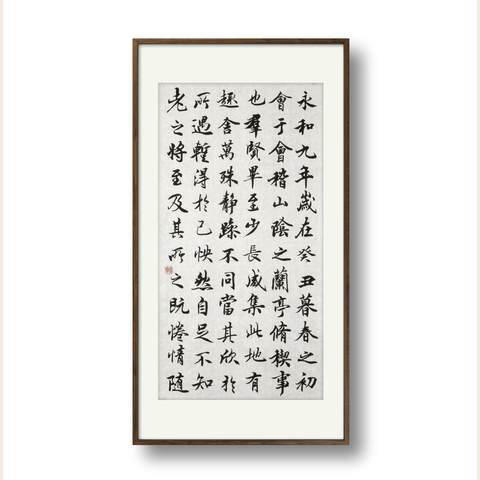 永和九年歲在癸丑暮春之初
會于會稽山陰之蘭亭脩稧事
也羣賢畢至少長咸集此地有
趣舍萬殊靜躁不同當其欣於
所遇暫得於己怏然自足不知
老之將至及其所之既惓情隨